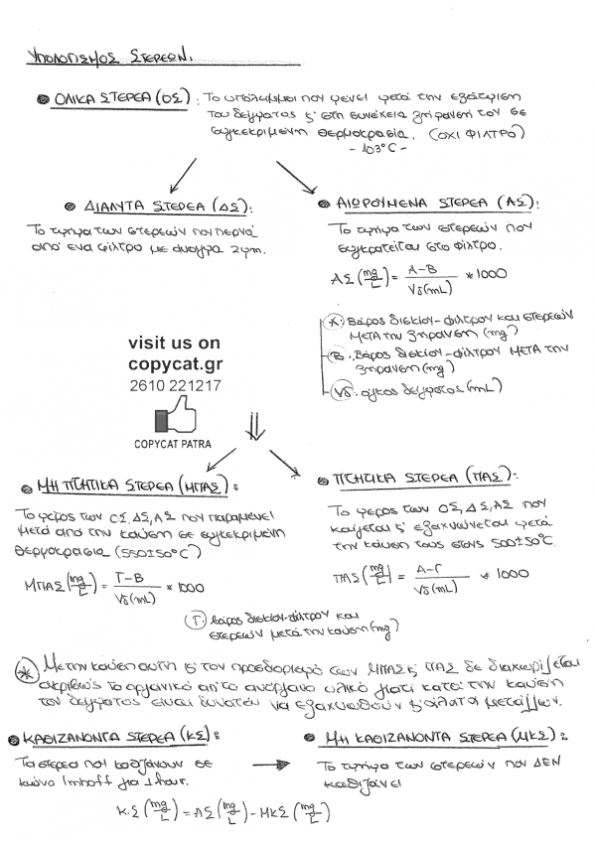 ΥΠΟΛΟΓΙΣΜΟΣ ΣΤΕΡΕΩΝ:
• ΟΛΙΚΑ ΣΤΕΡΕΑ (ΟΣ): Το υπόλειμμα που μένει μετά την εξάτμιση
του δείγματος κ' στη συνέχεια ξήρανσή του σε
συγκεκριμένη θερμοκρασία. (ΟΧΙ ΦΙΛΤΡΟ)
- 103°C -
• ΔΙΑΛΥΤΑ ΣΤΕΡΕΑ (ΔΣ):
Το τμήμα των στερεών που περνά
από ένα φίλτρο με άνοιγμα 2μm.
• ΑΙΩΡΟΥΜΕΝΑ ΣΤΕΡΕΑ (ΑΣ):
Το τμήμα των στερεών που
συγκρατείται στο φίλτρο.
ΑΣ (mg/L) = A-B / Vδ(mL) * 1000
Α: Βάρος δισκίου-φίλτρου και στερεών
ΜΕΤΑ την ξήρανση (mg)
Β: Βάρος δισκίου-φίλτρου ΜΕΤΑ την
ξήρανση (mg)
Vδ: όγκος δείγματος (mL)
visit us on
copycat.gr
2610 221217
COPYCAT PATRA
• ΜΗ ΠΤΗΤΙΚΑ ΣΤΕΡΕΑ (ΜΠΑΣ):
Το μέρος των ΟΣ, ΔΣ, ΑΣ που παραμένει
μετά από την καύση σε συγκεκριμένη
θερμοκρασία (550±50°C)
ΜΠΑΣ (mg/L) = Γ-Β / Vδ(mL) * 1000
• ΠΤΗΤΙΚΑ ΣΤΕΡΕΑ (ΠΑΣ):
Το μέρος των ΟΣ, ΔΣ, ΑΣ που
καίγεται κ' εξαχνώνεται μετά
την καύση τους στους 500±50°C.
ΠΑΣ (mg/L) = Α-Γ / Vδ(mL) * 1000
Γ: βάρος δισκίου-φίλτρου και
στερεών μετά την καύση (mg)
* Με την καύση αυτή κ' τον προσδιορισμό των ΜΠΑΣ κ' ΠΑΣ δε διαχωρίζεται
ακριβώς το οργανικό απ'το ανόργανο υλικό γιατί κατά την καύση
του δείγματος είναι δυνατόν να εξαχνωθούν κ' άλατα μετάλλων.
• ΚΑΘΙΖΑΝΟΝΤΑ ΣΤΕΡΕΑ (ΚΣ):
Τα στερεά που καθιζάνουν σε
κώνο Imhoff για 1 hour.
• ΜΗ ΚΑΘΙΖΑΝΟΝΤΑ ΣΤΕΡΕΑ (ΜΚΣ):
Το τμήμα των στερεών που ΔΕΝ
καθιζάνει
ΚΣ (mg/L) = ΑΣ (mg/L) - ΜΚΣ (mg/L)